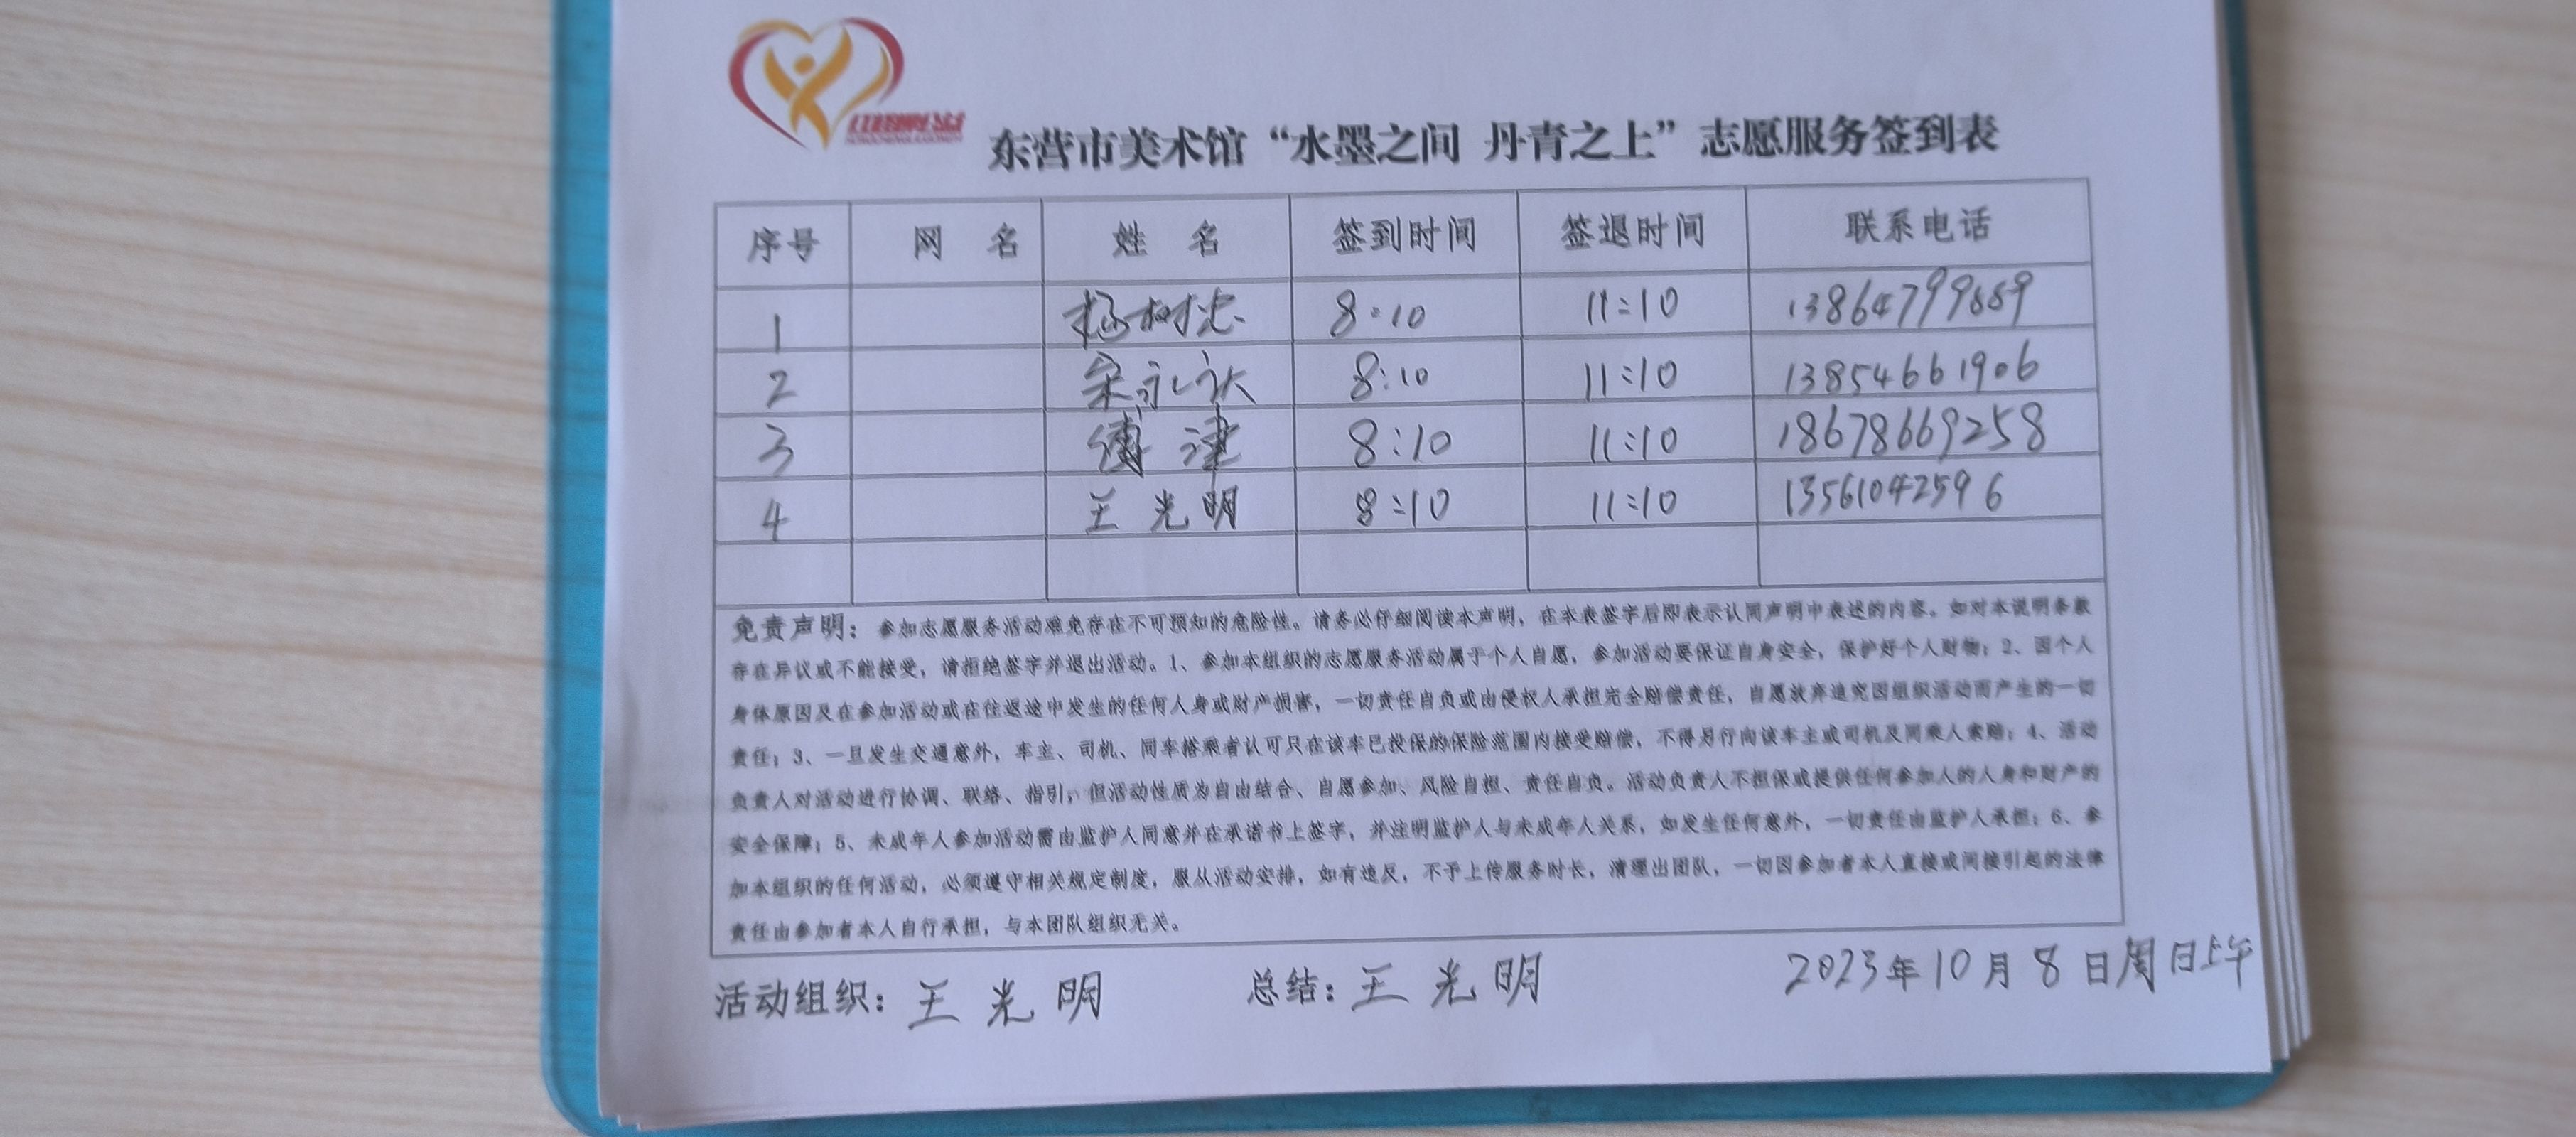 东营市美术馆“水墨之间 丹青之上”志愿服务签到表
序号 网 名 姓 名 签到时间 签退时间 联系电话
1 杨树忠 8:10 11:10 13864799889
2 宋永 8:10 11:10 13854661906
3 傅津 8:10 11:10 18678669258
4 王光明 8:10 11:10 13561042596
免责声明：参加志愿服务活动难免存在不可预知的危险性。请务必仔细阅读本声明，在本表签字后即表示认同声明中表述的内容。如对本说明条款
存在异议或不能接受，请拒绝签字并退出活动。1、参加本组织的志愿服务活动属于个人自愿，参加活动要保证自身安全，保护好个人财物；2、因个人
身体原因及在参加活动或在往返途中发生的任何人身或财产损害，一切责任自负或由侵权人承担完全赔偿责任，自愿放弃追究因组织活动而产生的一切
责任；3、一旦发生交通意外，车主、司机、同车搭乘者认可只在该车已投保的保险范围内接受赔偿，不得另行向该车主或司机及同乘人索赔；4、活动
负责人对活动进行协调、联络、指引，但活动性质为自由结合、自愿参加、风险自担、责任自负。活动负责人不担保或提供任何参加人的人身和财产的
安全保障；5、未成年人参加活动需由监护人同意并在承诺书上签字，并注明监护人与未成年人关系，如发生任何意外，一切责任由监护人承担；6、参
加本组织的任何活动，必须遵守相关规定制度，服从活动安排，如有违反，不予上传服务时长，清理出团队，一切因参加者本人直接或间接引起的法律
责任由参加者本人自行承担，与本团队组织无关。
活动组织：王光明 总结：王光明 2023年10月8日周日上午